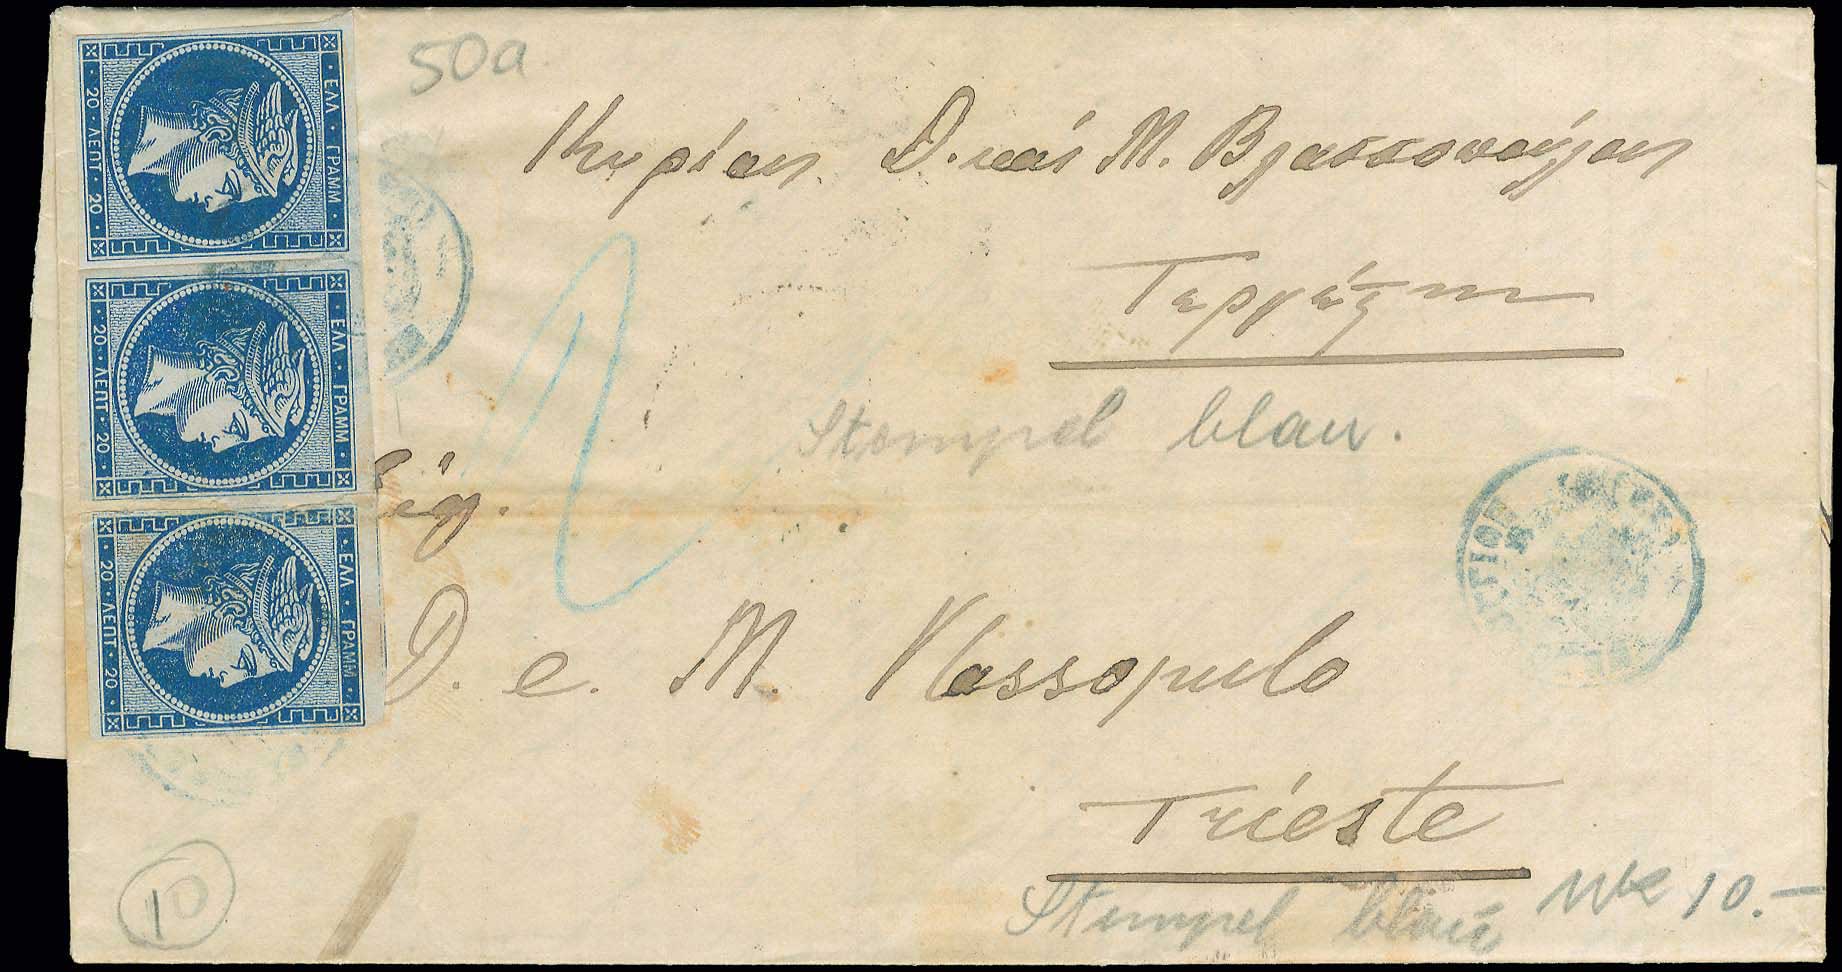 50a
ΕΛΛ · ΓΡΑΜΜ ·
· 20 · ΛΕΠΤ · 20 ·
ΕΛΛ · ΓΡΑΜΜ ·
· 20 · ΛΕΠΤ · 20 ·
ΕΛΛ · ΓΡΑΜΜ ·
· 20 · ΛΕΠΤ · 20 ·
Κυρίους Μ. Βλασσοπούλους
Τεργέστην
Stempel blau.
Sig.
D. e. M. Vlassopulo
Trieste
Stempel blau
10.-
10